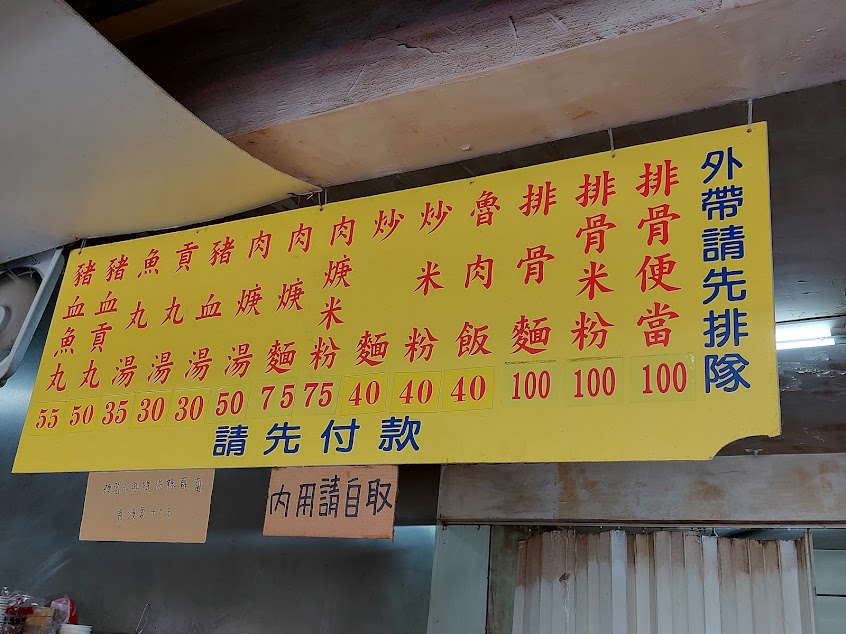 外帶請先排隊
排骨便當 100
排骨米粉 100
排骨麵 100
魯肉飯 40
炒米粉 40
炒麵 40
肉焿米粉 75
肉焿麵 75
肉焿湯 50
豬血湯 30
貢丸湯 30
魚丸湯 35
豬血貢丸 50
豬血魚丸 55
請先付款
內用請自取